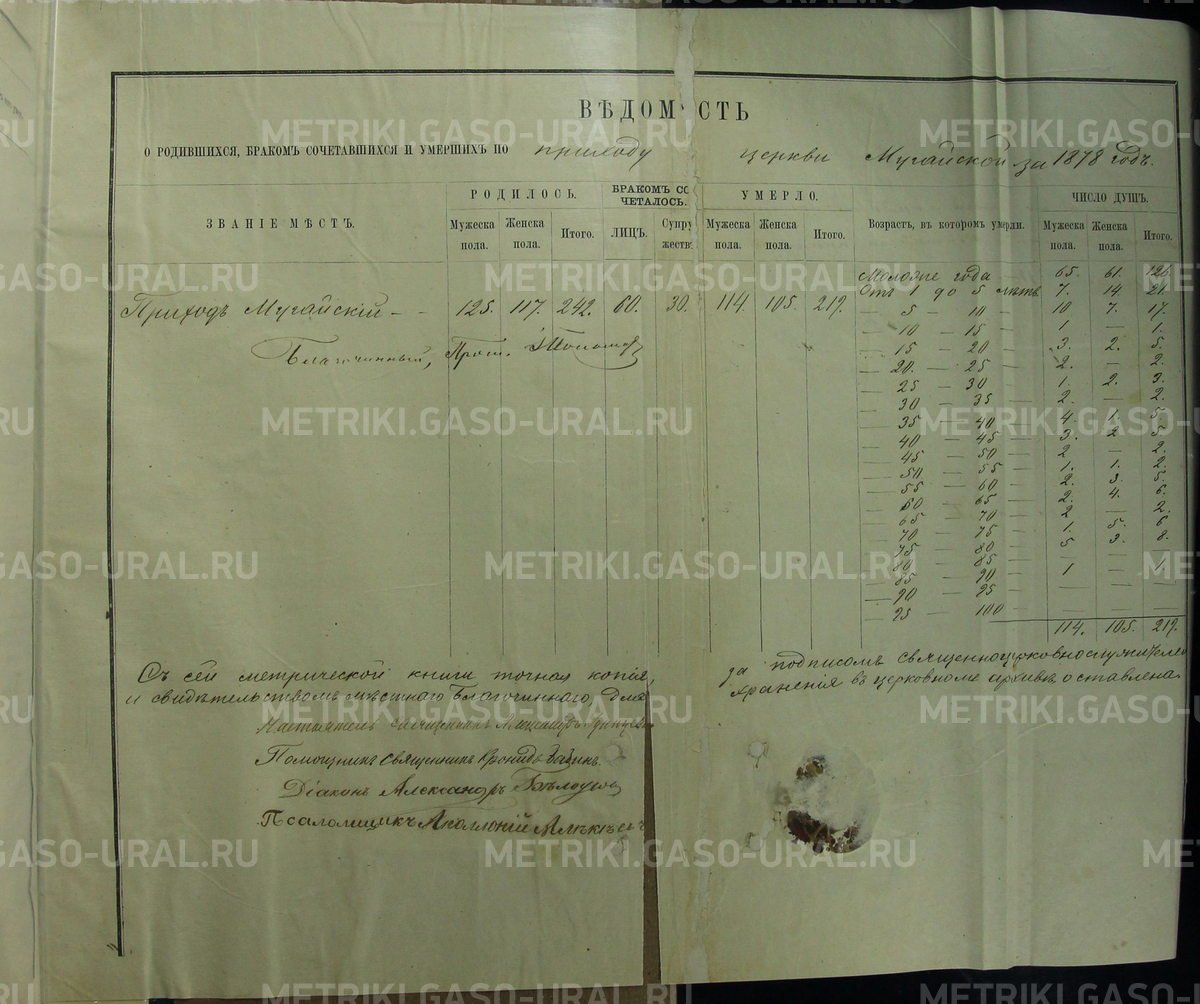 ВѢДОМОСТЬ
О РОДИВШИХСЯ, БРАКОМЪ СОЧЕТАВШИХСЯ И УМЕРШИХЪ ПО приходу церкви Мугайской за 1878 годъ.
ЗВАНІЕ МѢСТЪ. РОДИЛОСЬ. БРАКОМЪ СОЧЕТАЛОСЬ. УМЕРЛО. Возрастъ, въ которомъ умерли. ЧИСЛО ДУШЪ.
Мужеска пола. Женска пола. Итого. ЛИЦЪ. Супружествъ. Мужеска пола. Женска пола. Итого. Мужеска пола. Женска пола. Итого.
Приходъ Мугайскій - - 125. 117. 242. 60. 30. 114. 105. 219.
Благочинный, Прот.
Моложе года 65. 61. 126.
Отъ 1 до 5 лѣтъ 7. 14. 21.
— 5 — 10 — 10 7. 17.
— 10 — 15 — 1 — 1.
— 15 — 20 — 3. 2. 5.
— 20. — 25 — 2. — 2.
— 25 — 30 — 1. 2. 3.
— 30 — 35 — 2. — 2.
— 35 — 40 — 4. 1. 5.
— 40 — 45 — 3. 2 5.
— 45 — 50 — 2 — 2.
— 50 — 55 — 1. 1. 2.
— 55 — 60 — 2. 3. 5.
— 60 — 65 — 2. 4. 6.
— 65 — 70 — 2 — 2.
— 70 — 75 — 1. 5. 6
— 75 — 80 — 5 3. 8.
— 80 — 85 — — — —
— 85 — 90 — 1 — 1.
— 90 — 95 — — — —
— 95 — 100 — — — —
114. 105. 219.
Съ сей метрической книги точная копія, за подписомъ священноцерковнослужителей
и свидѣтельствомъ мѣстнаго Благочиннаго, для хранения въ церковномъ архивѣ оставлена.
Настоятель Священникъ
Помощникъ Священникъ
Діаконъ Александръ
Псаломщикъ
METRIKI.GASO-URAL.RU